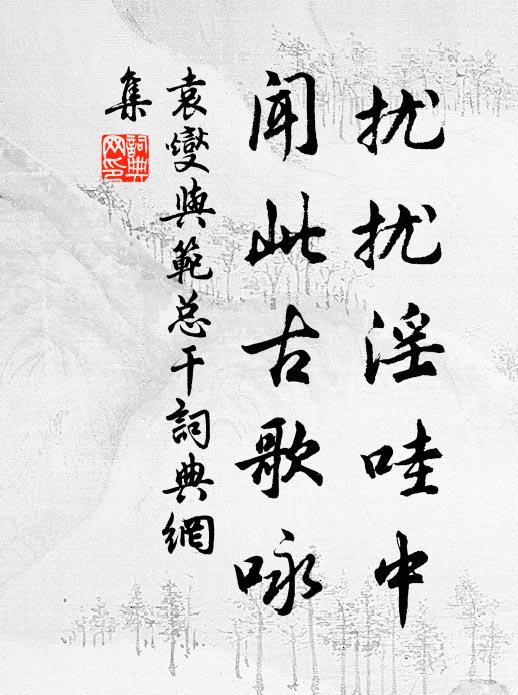 扰扰淫哇中
闻此古歌咏
袁燮與範总干詞典網
集
詞典
网印